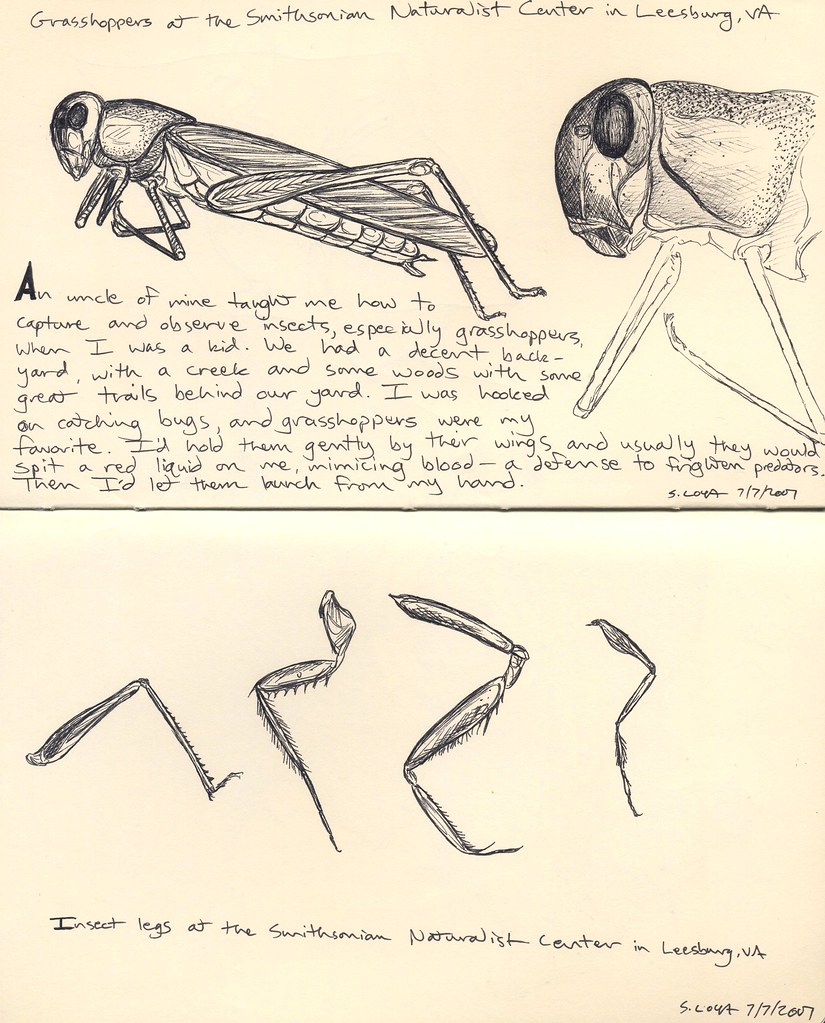 Grasshoppers at the Smithsonian Naturalist Center in Leesburg, VA
An uncle of mine taught me how to
capture and observe insects, especially grasshoppers,
when I was a kid. We had a decent back-
yard, with a creek and some woods with some
great trails behind our yard. I was hooked
on catching bugs, and grasshoppers were my
favorite. I'd hold them gently by their wings and usually they would
spit a red liquid on me, mimicing blood - a defense to frighten predators.
Then I'd let them launch from my hand.
S. LOYA 7/7/2007
Insect legs at the Smithsonian Naturalist Center in Leesburg, VA
S. LOYA 7/7/2007